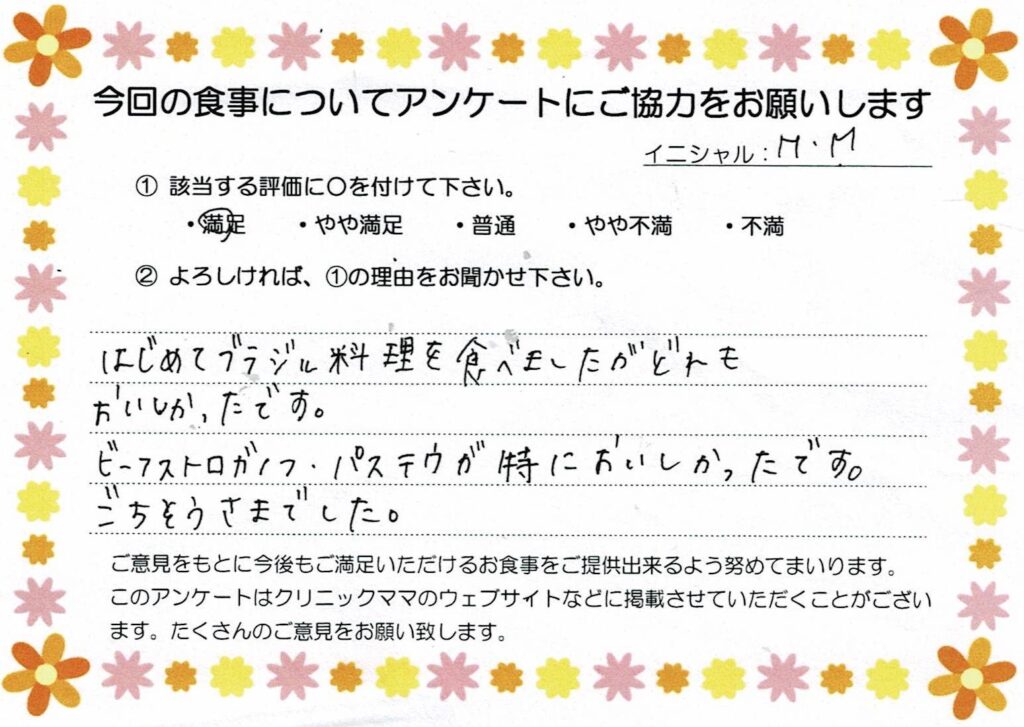 今回の食事についてアンケートにご協力をお願いします
イニシャル：M.M
① 該当する評価に〇を付けて下さい。
・満足 ・やや満足 ・普通 ・やや不満 ・不満
② よろしければ、①の理由をお聞かせ下さい。
はじめてブラジル料理を食べましたがどれも
おいしかったです。
ビーフストロガノフ・パステウが特においしかったです。
ごちそうさまでした。
ご意見をもとに今後もご満足いただけるお食事をご提供出来るよう努めてまいります。
このアンケートはクリニックママのウェブサイトなどに掲載させていただくことがござい
ます。たくさんのご意見をお願い致します。